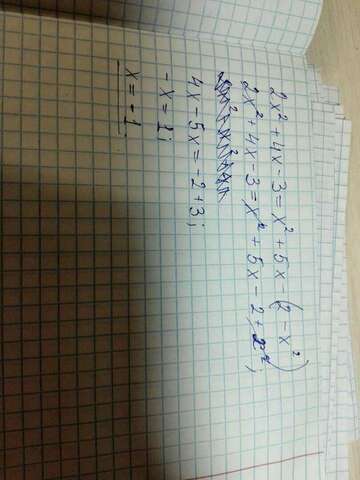 2x² + 4x - 3 = x² + 5x - (2 - x²)
2x² + 4x - 3 = x² + 5x - 2 + x²;
4x - 5x = -2 + 3;
-x = 1;
x = -1